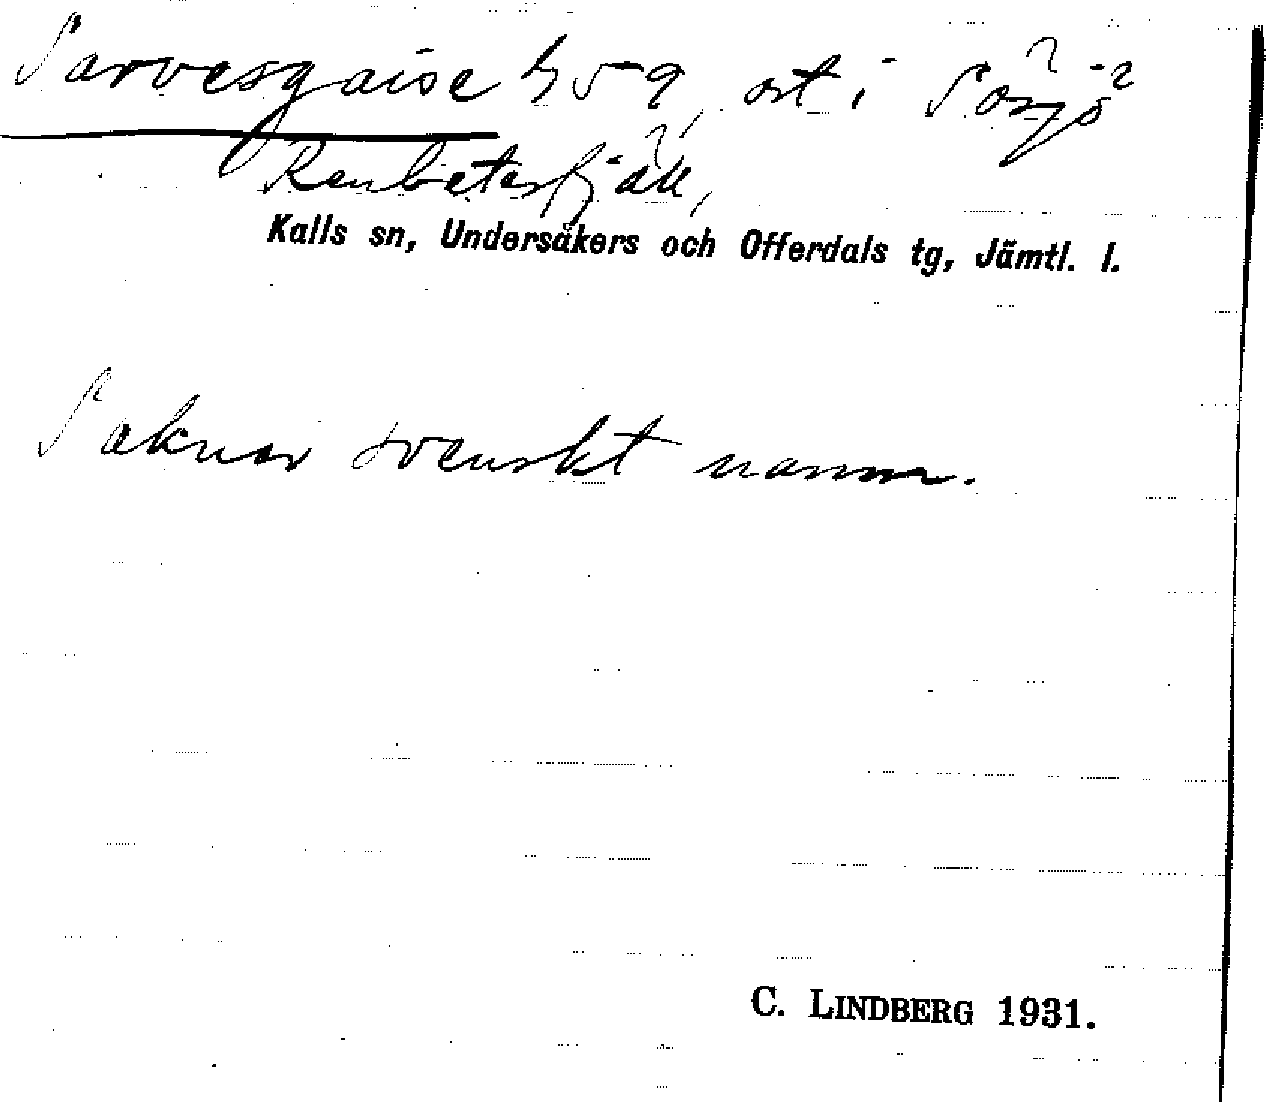 Sarvesgaise h59, ost i Sösjö
Renbetesfjäll,
Kalls sn, Undersåkers och Offerdals tg, Jämtl. l.
Saknar svenskt namn.
C. LINDBERG 1931.